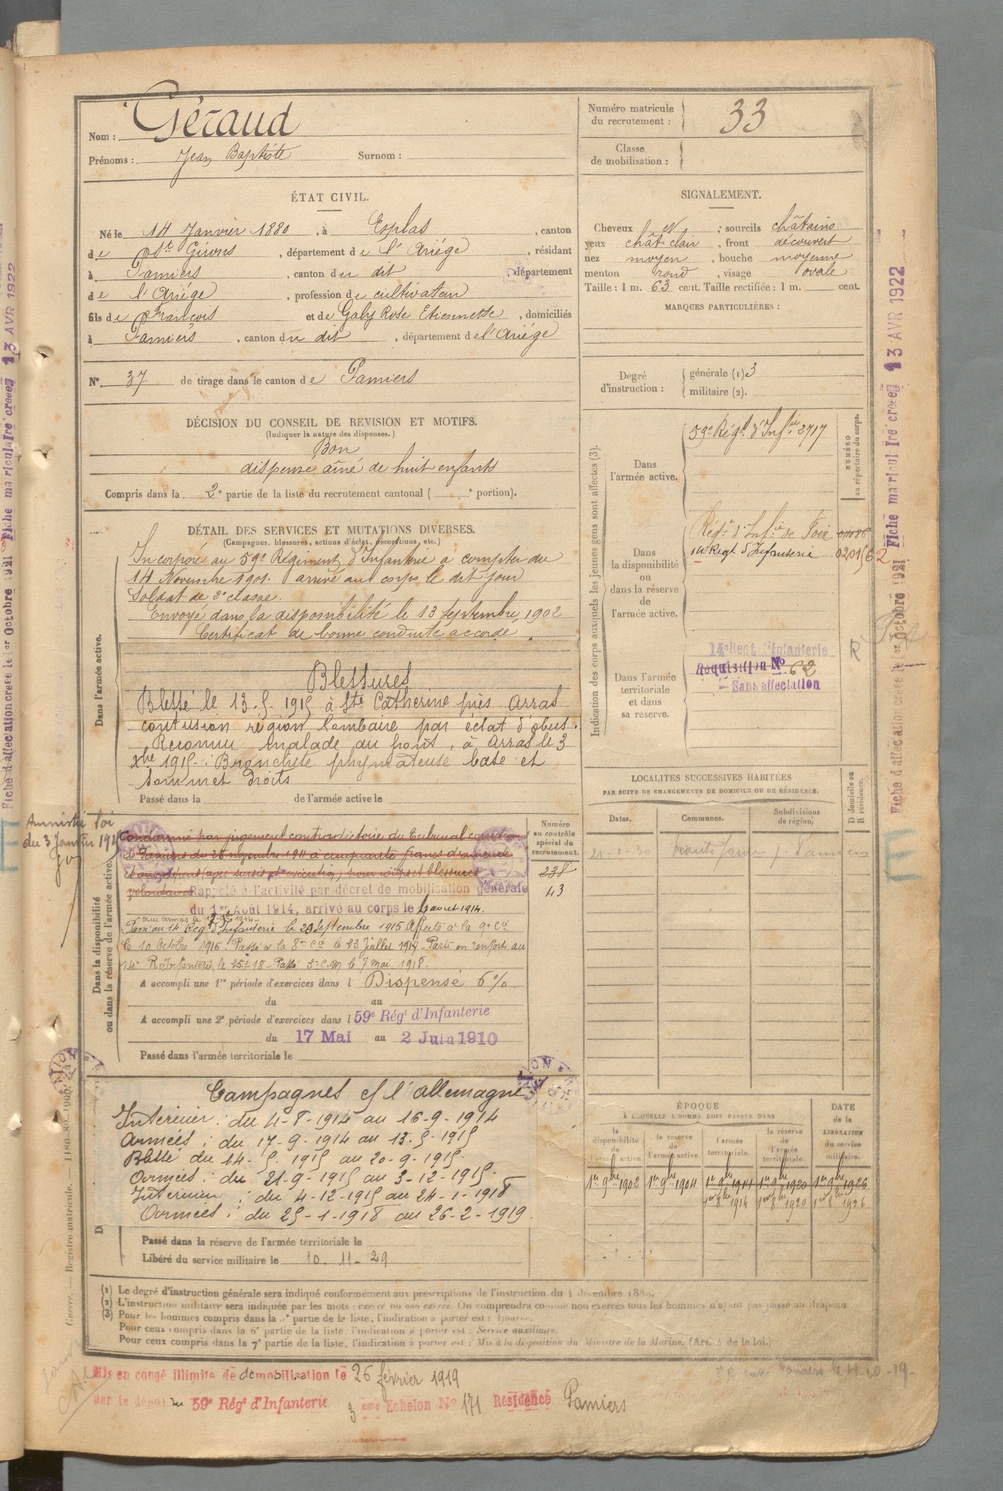 Nom : Géraud
Prénoms : Jean Baptiste Surnom :
Numéro matricule du recrutement : 33
Classe de mobilisation :
ÉTAT CIVIL.
Né le 14 Janvier 1880, à Esplas, canton
de St Girons, département de l'Ariège, résidant
à Pamiers, canton du dit, département
de l'Ariège, profession de cultivateur
fils de François et de Galy Rose Etiennette, domiciliés
à Pamiers, canton du dit, département de l'Ariège
N° 37 de tirage dans le canton de Pamiers
SIGNALEMENT.
Cheveux et ; sourcils châtains
yeux chât clair, front découvert
nez moyen, bouche moyenne
menton rond, visage ovale
Taille : 1 m. 63 cent. Taille rectifiée : 1 m. cent.
MARQUES PARTICULIÈRES :
Degré d'instruction : générale (1) 3
militaire (2).
DÉCISION DU CONSEIL DE REVISION ET MOTIFS.
(Indiquer la nature des dispenses.)
Bon
dispense aîné de huit enfants
Compris dans la 2e partie de la liste du recrutement cantonal ( e portion).
DÉTAIL DES SERVICES ET MUTATIONS DIVERSES.
(Campagnes, blessures, actions d'éclat, décorations, etc.)
Dans l'armée active.
Incorporé au 59e Régiment d'Infanterie à compter du
14 Novembre 1901. arrivé au corps le dit jour
Soldat de 2e classe.
Envoyé dans la disponibilité le 13 Septembre 1902
Certificat de bonne conduite accordé.
Blessures
Blessé le 13.5.1915 à Ste Catherine près Arras
contusion région lombaire par éclat d'obus.
Reconnu malade au front, à Arras le 3
Xbre 1915. Bronchite phymateuse base et
sommet droits
Passé dans la de l'armée active le
Amnistié loi
du 3 Janvier
Dans la disponibilité ou dans la réserve de l'armée active.
Condamné par jugement contradictoire du Tribunal
de Pamiers du 26 novembre 1911 à cinquante francs d'amende
volontaires Rappelé à l'activité par décret de mobilisation générale
du 1er Août 1914, arrivé au corps le 4 août 1914.
Passé au 14 Reg d'Infanterie le 29 Septembre 1915 Affecté à la 9e Cie
le 10 Octobre 1915. Passé à la 8me Cie le 23 Juillet 1917. Parti en renfort au
14e R Infanterie le 25-1-18. Passé 3e C.M le 7 mai 1918.
A accompli une 1re période d'exercices dans l Dispensé 6%
du au
A accompli une 2e période d'exercices dans l 59e Rég' d'Infanterie
du 17 Mai au 2 Juin 1910
Passé dans l'armée territoriale le
Numéro au contrôle spécial du recrutement.
238
43
Campagnes c/ l'allemagne
Intérieur : du 4-8-1914 au 16-9-1914
Armées : du 17-9-1914 au 13-5-1915
Blessé du 14-5-1915 au 20-9-1915
Armées : du 21-9-1915 au 3-12-1915
Intérieur : du 4-12-1915 au 24-1-1918
Armées : du 25-1-1918 au 26-2-1919
Passé dans la réserve de l'armée territoriale le
Libéré du service militaire le 10-11-29
Indication des corps auxquels les jeunes gens sont affectés (3)
NUMÉRO au répertoire du corps.
Dans l'armée active.
59e Régt d'Infie 2717
Dans la disponibilité ou dans la réserve de l'armée active.
Régt d'Infie de Foix
14 Régt d'Infanterie
Dans l'armée territoriale et dans sa réserve.
14e Régt d'Infanterie
Réquisition N° 62
Sans affectation
R
LOCALITÉS SUCCESSIVES HABITÉES
PAR SUITE DE CHANGEMENTS DE DOMICILE OU DE RÉSIDENCE.
Dates. Communes. Subdivisions de région. D Domicile ou R résidence.
ÉPOQUE
À LAQUELLE L'HOMME DOIT PASSER DANS
DATE de la LIBÉRATION du service militaire.
la disponibilité de l'armée active. la réserve de l'armée active. l'armée territoriale. la réserve de l'armée territoriale.
1er 9bre 1902 1er 9bre 1904 1er 9bre 1914 1er 9bre 1920 1er 9bre 1926
1er 8bre 1914 1er 8bre 1920 1er 8bre 1926
(1) Le degré d'instruction générale sera indiqué conformément aux prescriptions de l'instruction du 4 décembre 1889.
(2) L'instruction militaire sera indiquée par les mots : exercé ou non exercé. On comprendra comme non exercés tous les hommes n'ayant pas passé au drapeau.
(3) Pour les hommes compris dans la 5e partie de la liste, l'indication à porter est : Ajourné.
Pour ceux compris dans la 6e partie de la liste, l'indication à porter est : Service auxiliaire.
Pour ceux compris dans la 7e partie de la liste, l'indication à porter est : Mis à la disposition du Ministre de la Marine. (Art. 4 de la loi.)
Mis en congé illimité de démobilisation le 26 février 1919
par le dépôt du 59e Rég' d'Infanterie 3 ème Echelon N° 171 Résidence Pamiers
Guerre. Registre matricule.
Fiche d'affectation créée le 1er Octobre 1921 Fiche matriculaire créée 13 AVR 1922
Fiche d'affectation créée le 1er Octobre 1921 Fiche matriculaire créée 13 AVR 1922